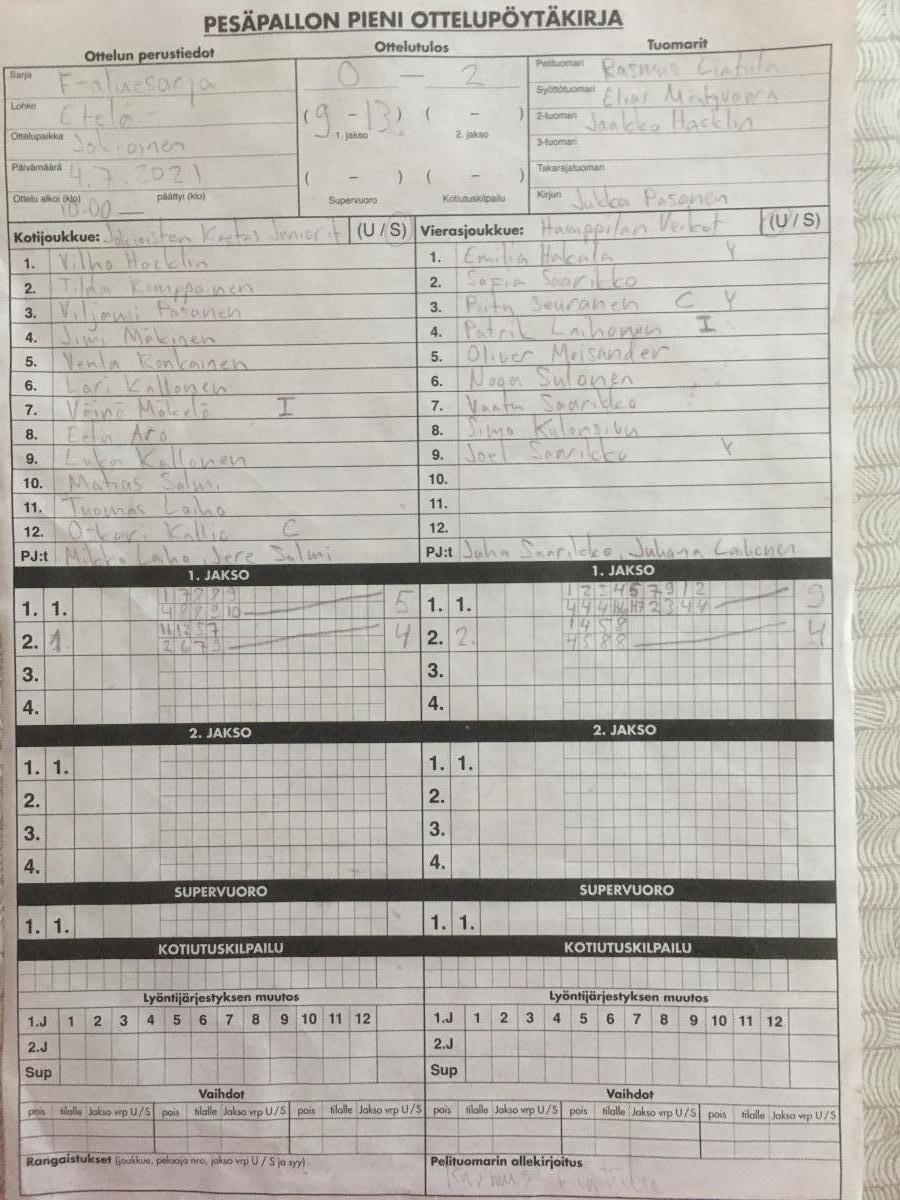 PESÄPALLON PIENI OTTELUPÖYTÄKIRJA
Ottelun perustiedot
Ottelutulos
Tuomarit
Sarja F-aluesarja
Lohko Etelä
Ottelupaikka Jokioinen
Päivämäärä 4.7.2021
Ottelu alkoi (klo) 10.00 — päättyi (klo)
0 — 2
(9 - 13) ( - )
1. jakso 2. jakso
( - ) ( - )
Supervuoro Kotiutuskilpailu
Pelituomari Rasmus
Syöttötuomari Elias
2-tuomari Jaakko Hacklin
3-tuomari
Takarajatuomari
Kirjuri Jukka Pasanen
Kotijoukkue: Jokioisten Koetus Juniorit (U / S)
1. Vilho Hacklin
2. Tilda Komppainen
3. Viljami Pasanen
4. Jimi Mäkinen
5. Venla Konkainen
6. Lari Kallonen
7. Väinö Mäkelä I
8. Eetu Aro
9. Luka Kallonen
10. Matias Salmi
11. Tuomas Laiho
12. Oskari Kallio C
PJ:t Mikko Laiho, Jere Salmi
Vierasjoukkue: Humppilan Veikot (U / S)
1. Emilia Hakala Y
2. Sofia Saarikko
3. Piitu Seuranen C Y
4. Patrik Laihonen I
5. Oliver Meisander
6. Nooa Sulonen
7. Vaatu Saarikko
8. Simo Kulonsivu
9. Joel Saarikko Y
10.
11.
12.
PJ:t Juha Saarikko, Juhana Laihonen
1. JAKSO
1. 1. 1 7 8 8 9 5
4 8 8 9 10
2. 1. 11 12 5 7 4
2 6 7 9
3.
4.
2. JAKSO
1. 1.
2.
3.
4.
SUPERVUORO
1. 1.
KOTIUTUSKILPAILU
Lyöntijärjestyksen muutos
1.J 1 2 3 4 5 6 7 8 9 10 11 12
2.J
Sup
Vaihdot
pois tilalle Jakso vrp U/S pois tilalle Jakso vrp U/S pois tilalle Jakso vrp U/S
Rangaistukset (joukkue, pelaaja nro, jakso vrp U / S ja syy)
1. JAKSO
1. 1. 1 2 3 4 5 7 9 1 2 9
2. 2. 1 4 5 8 4
4 5 8 8
3.
4.
2. JAKSO
1. 1.
2.
3.
4.
SUPERVUORO
1. 1.
KOTIUTUSKILPAILU
Lyöntijärjestyksen muutos
1.J 1 2 3 4 5 6 7 8 9 10 11 12
2.J
Sup
Vaihdot
pois tilalle Jakso vrp U/S pois tilalle Jakso vrp U/S pois tilalle Jakso vrp U/S
Pelituomarin allekirjoitus
Rasmus